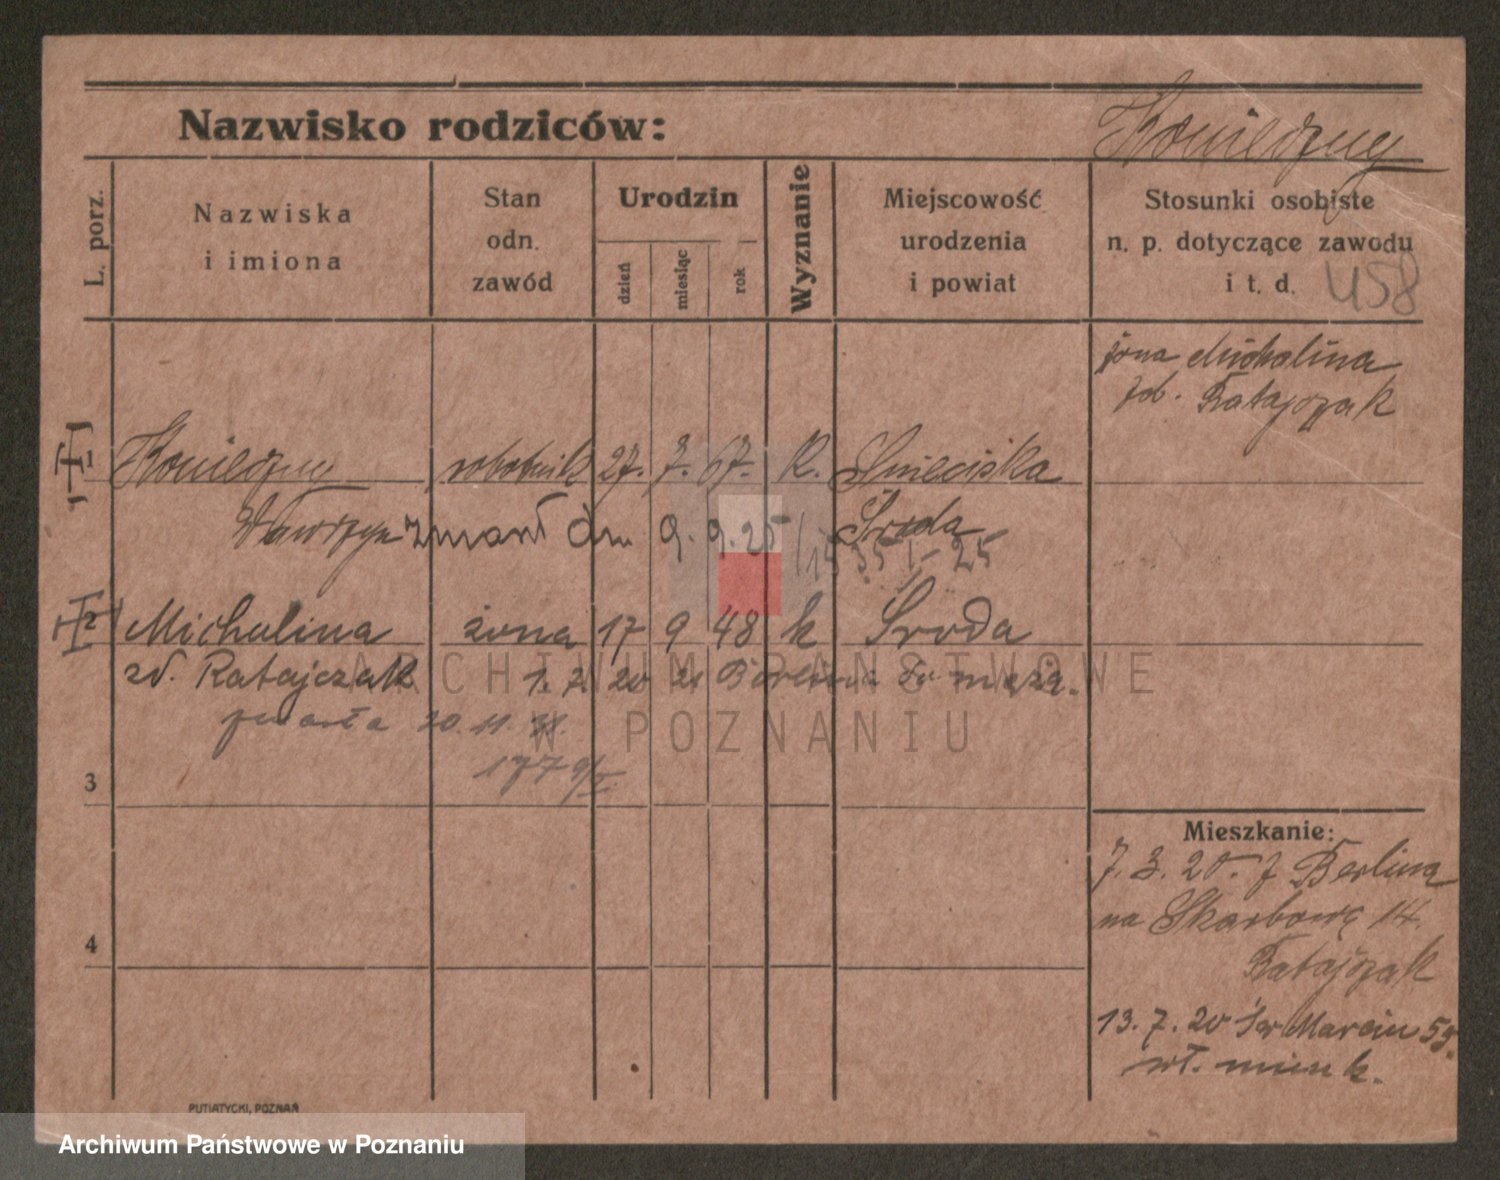 Nazwisko rodziców:
Konieczny
L. porz.
Nazwiska
i imiona
Stan
odn.
zawód
Urodzin
dzień
miesiąc
rok
Wyznanie
Miejscowość
urodzenia
i powiat
Stosunki osobiste
n. p. dotyczące zawodu
i t. d.
458
żona Michalina
zd. Ratajczak
1 Konieczny robotnik 27. 7. 67. K. Śnieciska
Wawrzyn zmarł dn. 9. 9. 25 Środa
2 Michalina żona 17 9 48 k Środa
zd. Ratajczak 1. 7. 20 z Berlina do męża.
zmarła 20. 11. 31.
3
4
Mieszkanie:
7. 3. 20. z Berlina
na Skarbowę 14.
Ratajczak
13. 7. 20 Św Marcin 59.
wł. mieszk.
PUTIATYCKI, POZNAŃ
ARCHIWUM PAŃSTWOWE
W POZNANIU
Archiwum Państwowe w Poznaniu